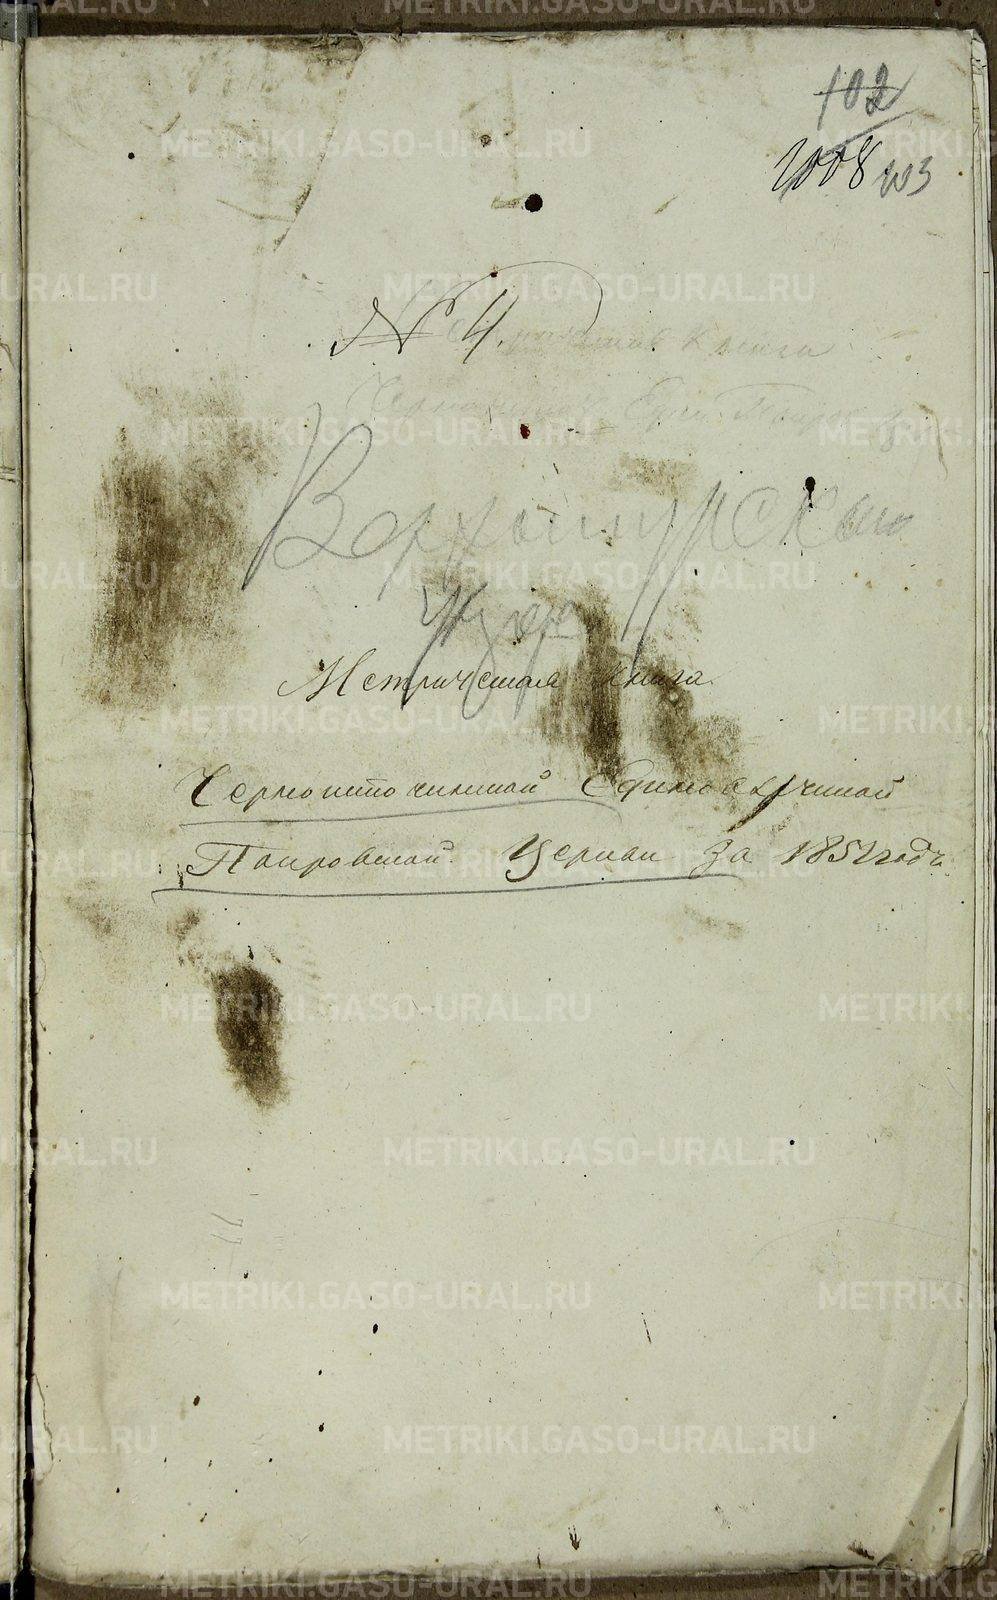 102
1008 103
№ 4.
Метрическая книга
Верхотурскаго
уезда
Метрическая книга.
Черноисточинской Единоверческой
Покровской Церкви за 1851 годъ
METRIKI.GASO-URAL.RU